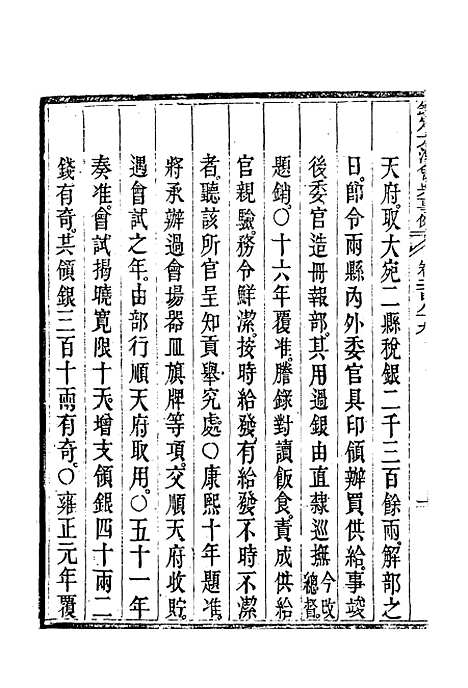 欽定大清會典事例 卷三百八九
天府取大宛二縣稅銀二千三百餘兩解部之
日節令兩縣內外委官具印領辦買供給事竣
後委官造冊報部其用過銀由直隸巡撫今改總督
題銷○十六年覆准謄錄對讀飯食責成供給
官親驗務令鮮潔按時給發有給發不時不潔
者聽該所官呈知貢舉究處○康熙十年題准
將承辦過會場器皿旗牌等項交順天府收貯
遇會試之年由部行順天府取用○五十一年
奏准會試揭曉寬限十天增支領銀四十兩二
錢有奇共領銀三百十兩有奇○雍正元年覆